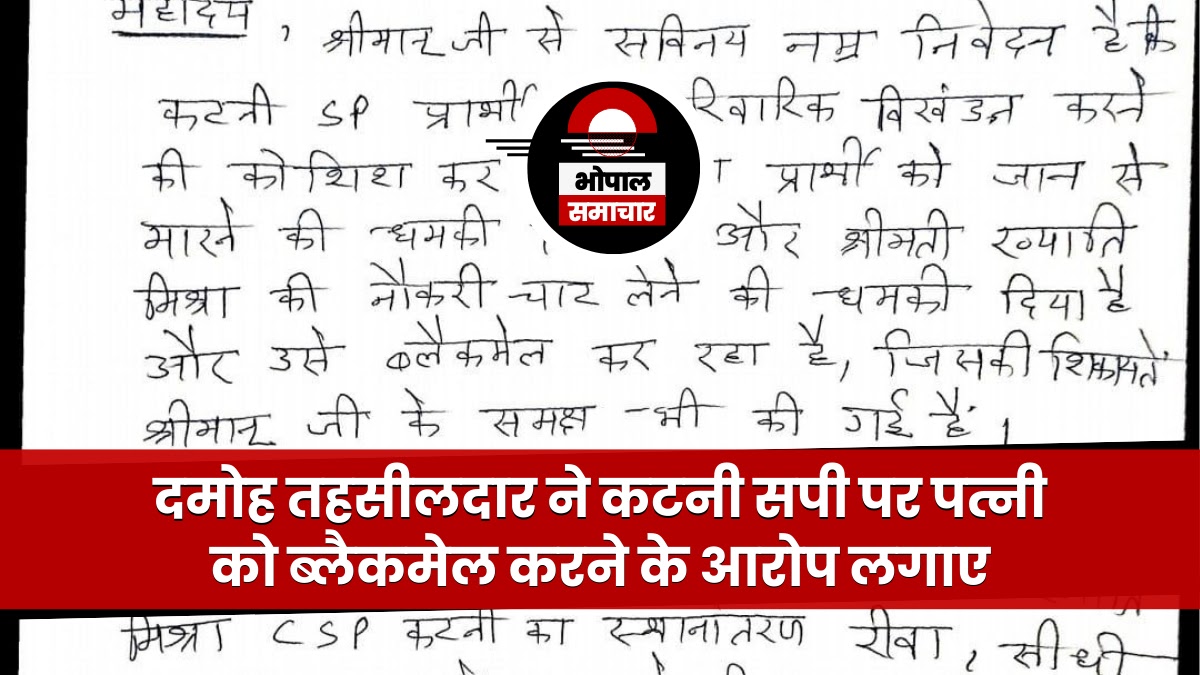 महोदय,
श्रीमान् जी से सविनय नम्र निवेदन है कि
कटनी SP प्रार्थी रिवारिक विखंडन करने
की कोशिश कर प्रार्थी को जान से
मारने की धमकी और श्रीमती ख्याति
मिश्रा की नौकरी चाट लेने की धमकी दिया है
और उसे ब्लैकमेल कर रहा है, जिसकी शिकायतें
श्रीमान् जी के समक्ष भी की गई हैं।
भोपाल
समाचार
दमोह तहसीलदार ने कटनी सपी पर पत्नी
को ब्लैकमेल करने के आरोप लगाए
मिश्रा CSP कटनी का स्थानांतरण रीवा, सीधी